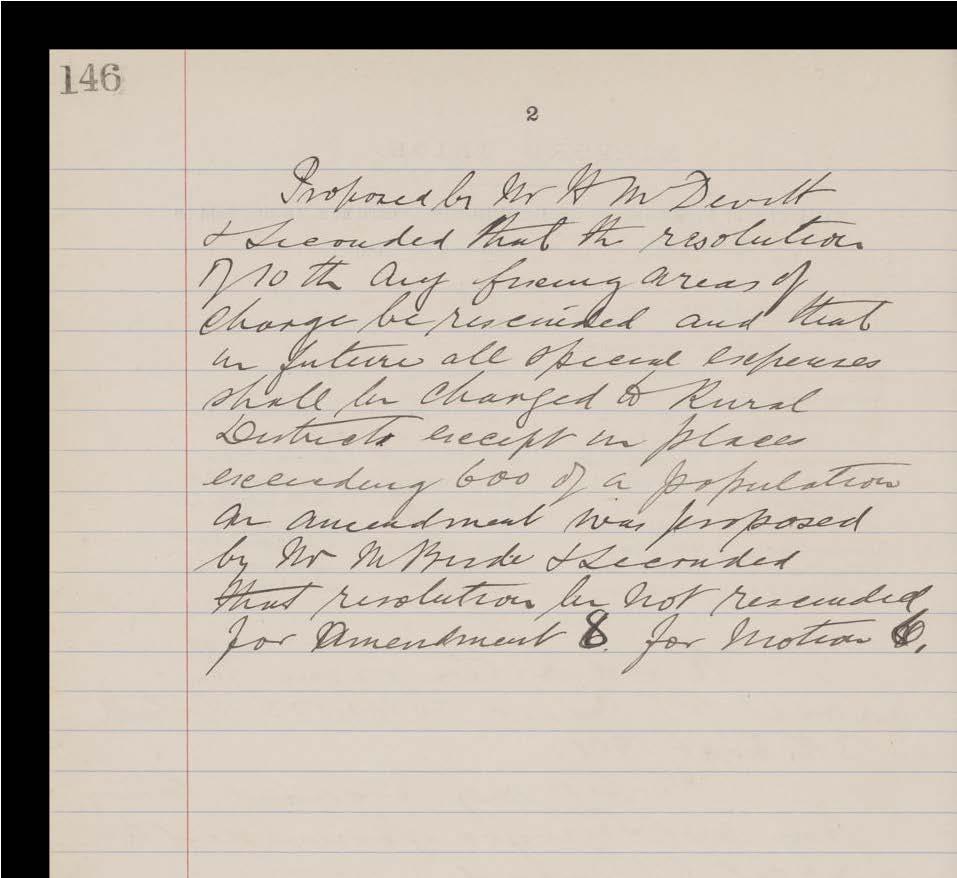 146
2
Proposed by Mr H McDevitt
& Seconded that the resolution
of 10th Aug fixing areas of
charge be rescinded and that
in future all special expenses
shall be charged to Rural
Districts except in places
exceeding 600 of a population
an amendment was proposed
by Mr McBride & Seconded
that resolution be not rescinded
for Amendment 8. for Motion 6.